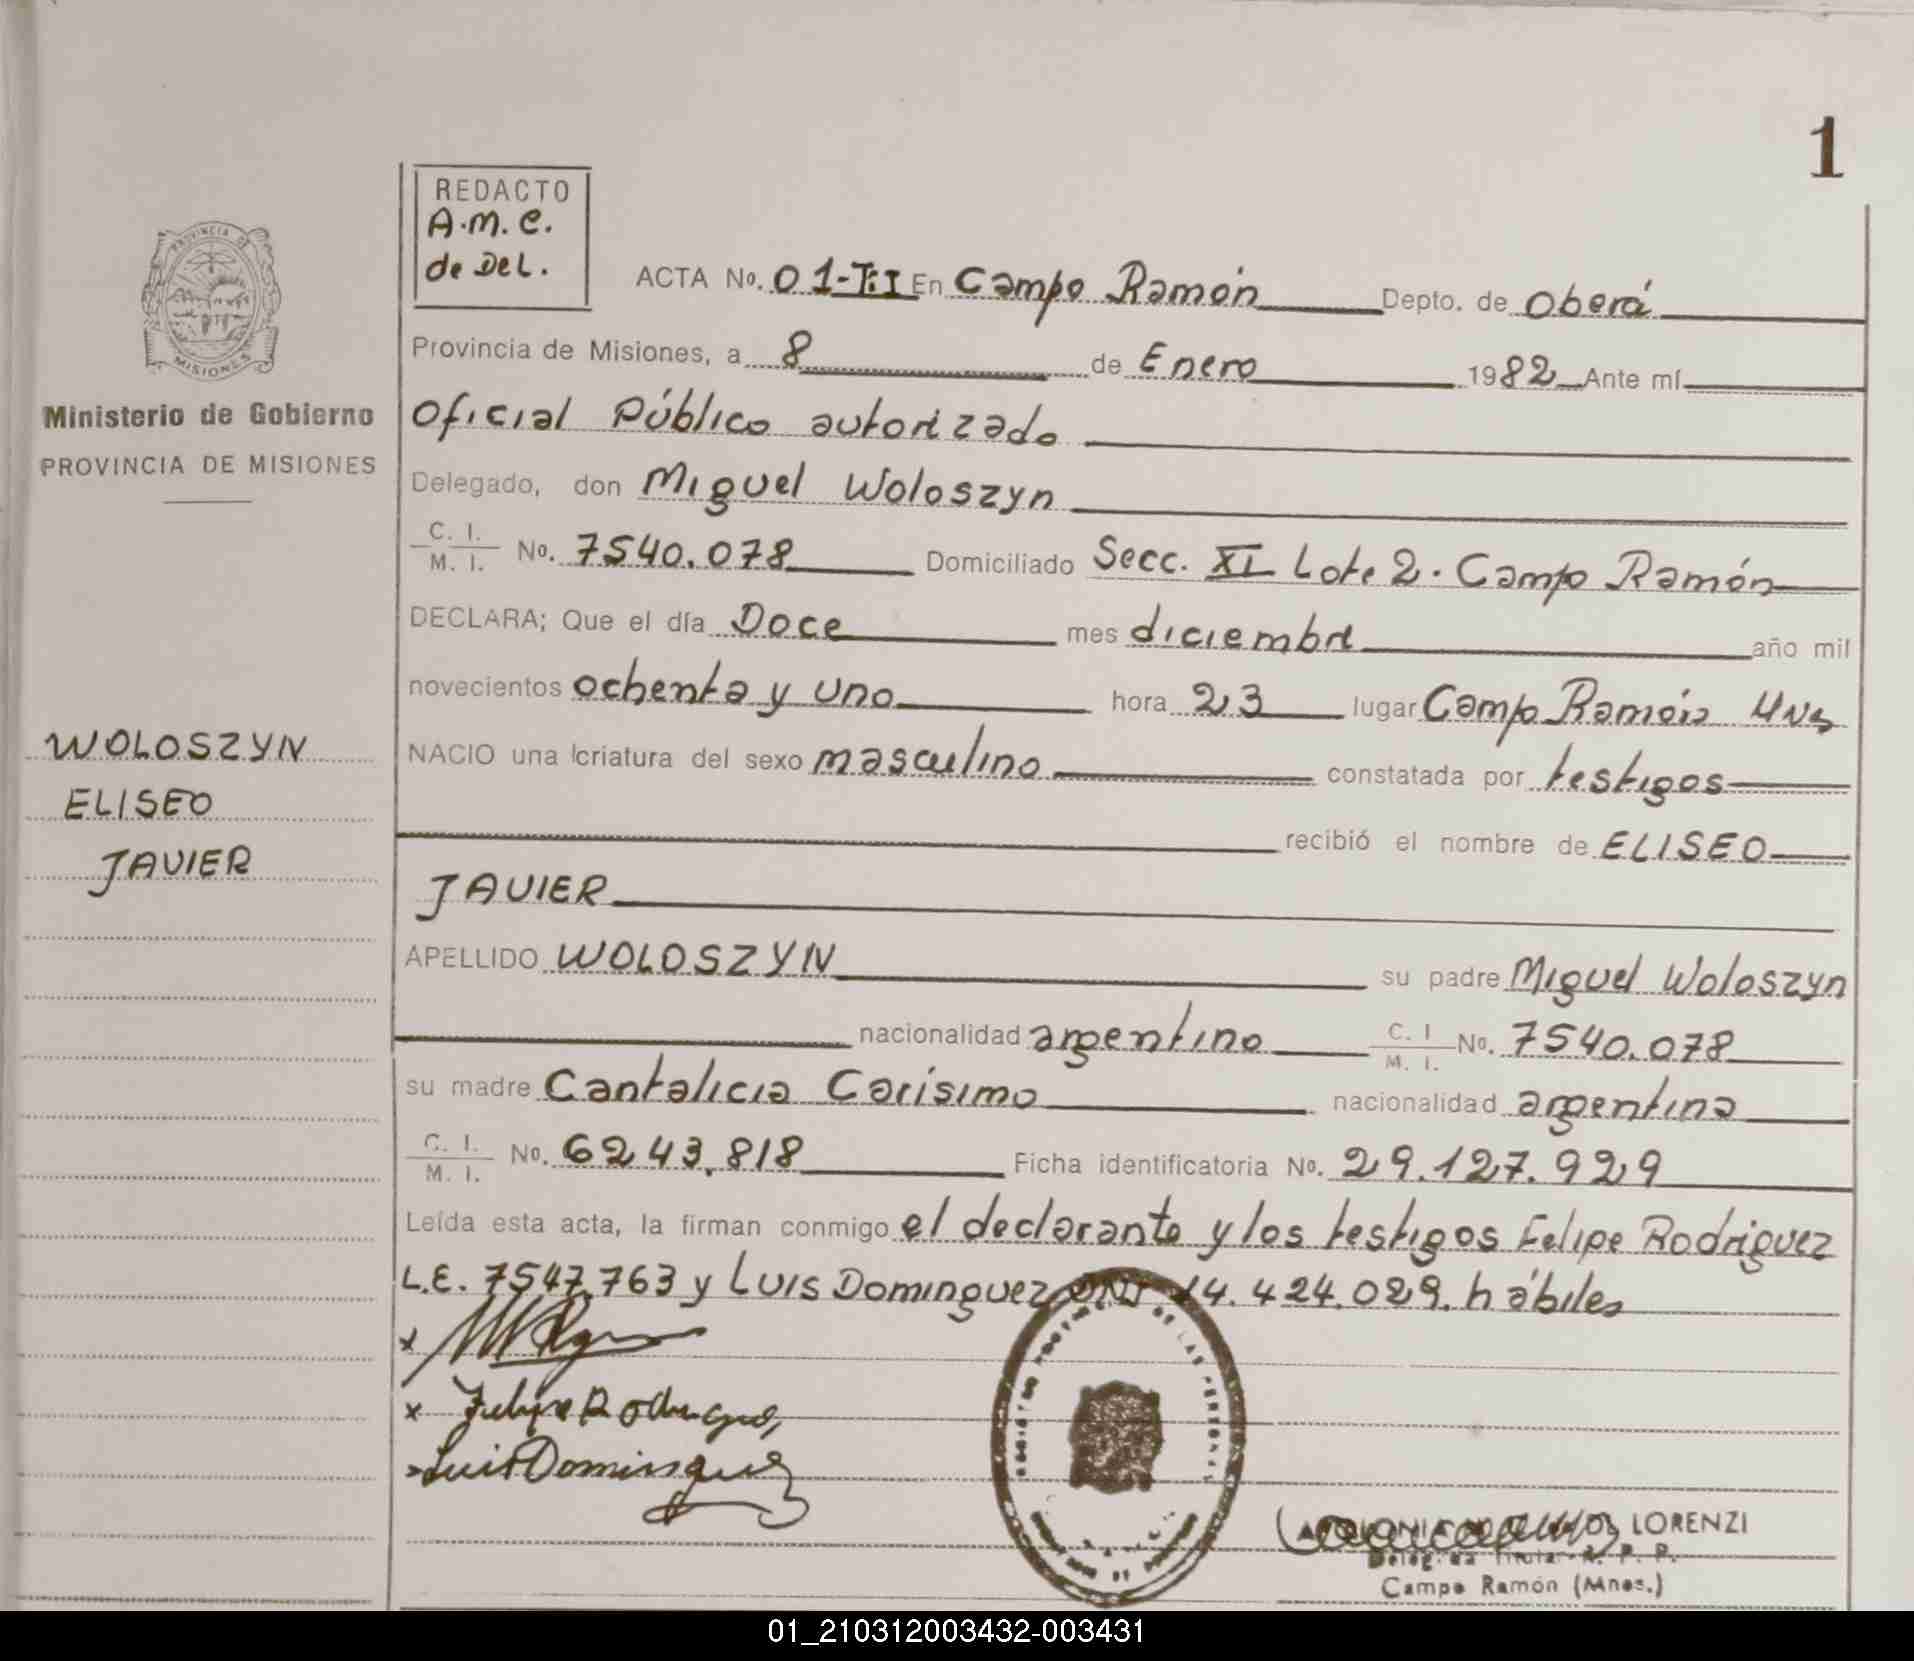 1
REDACTO
A.M.C.
de Del.
PROVINCIA DE
MISIONES
Ministerio de Gobierno
PROVINCIA DE MISIONES
ACTA No. 01-T:I En Campo Ramón Depto. de Oberá
Provincia de Misiones, a 8 de Enero 1982 Ante mí
Oficial Público autorizado
Delegado, don Miguel Woloszyn
C. I. M. I. No. 7540.078 Domiciliado Secc. XI Lote 2. Campo Ramón
DECLARA; Que el día Doce mes diciembre año mil
novecientos ochenta y uno hora 23 lugar Campo Ramón
NACIO una criatura del sexo masculino constatada por testigos
recibió el nombre de ELISEO
JAVIER
APELLIDO WOLOSZYN su padre Miguel Woloszyn
nacionalidad argentino C. I M. I. No. 7540.078
su madre Cantalicia Carísimo nacionalidad argentina
C. I. M. I. No. 6243.818 Ficha identificatoria No. 29.127.929
Leída esta acta, la firman conmigo el declarante y los testigos Felipe Rodriguez
L.E. 7547.763 y Luis Dominguez DNI 14.424.029. hábiles
WOLOSZYN
ELISEO
JAVIER
x
x Felipe Rodriguez
x Luis Dominguez
DE LAS PERSONAS
LORENZI
Delegada Titular R. P. P.
Campo Ramón (Mnes.)
01_210312003432-003431